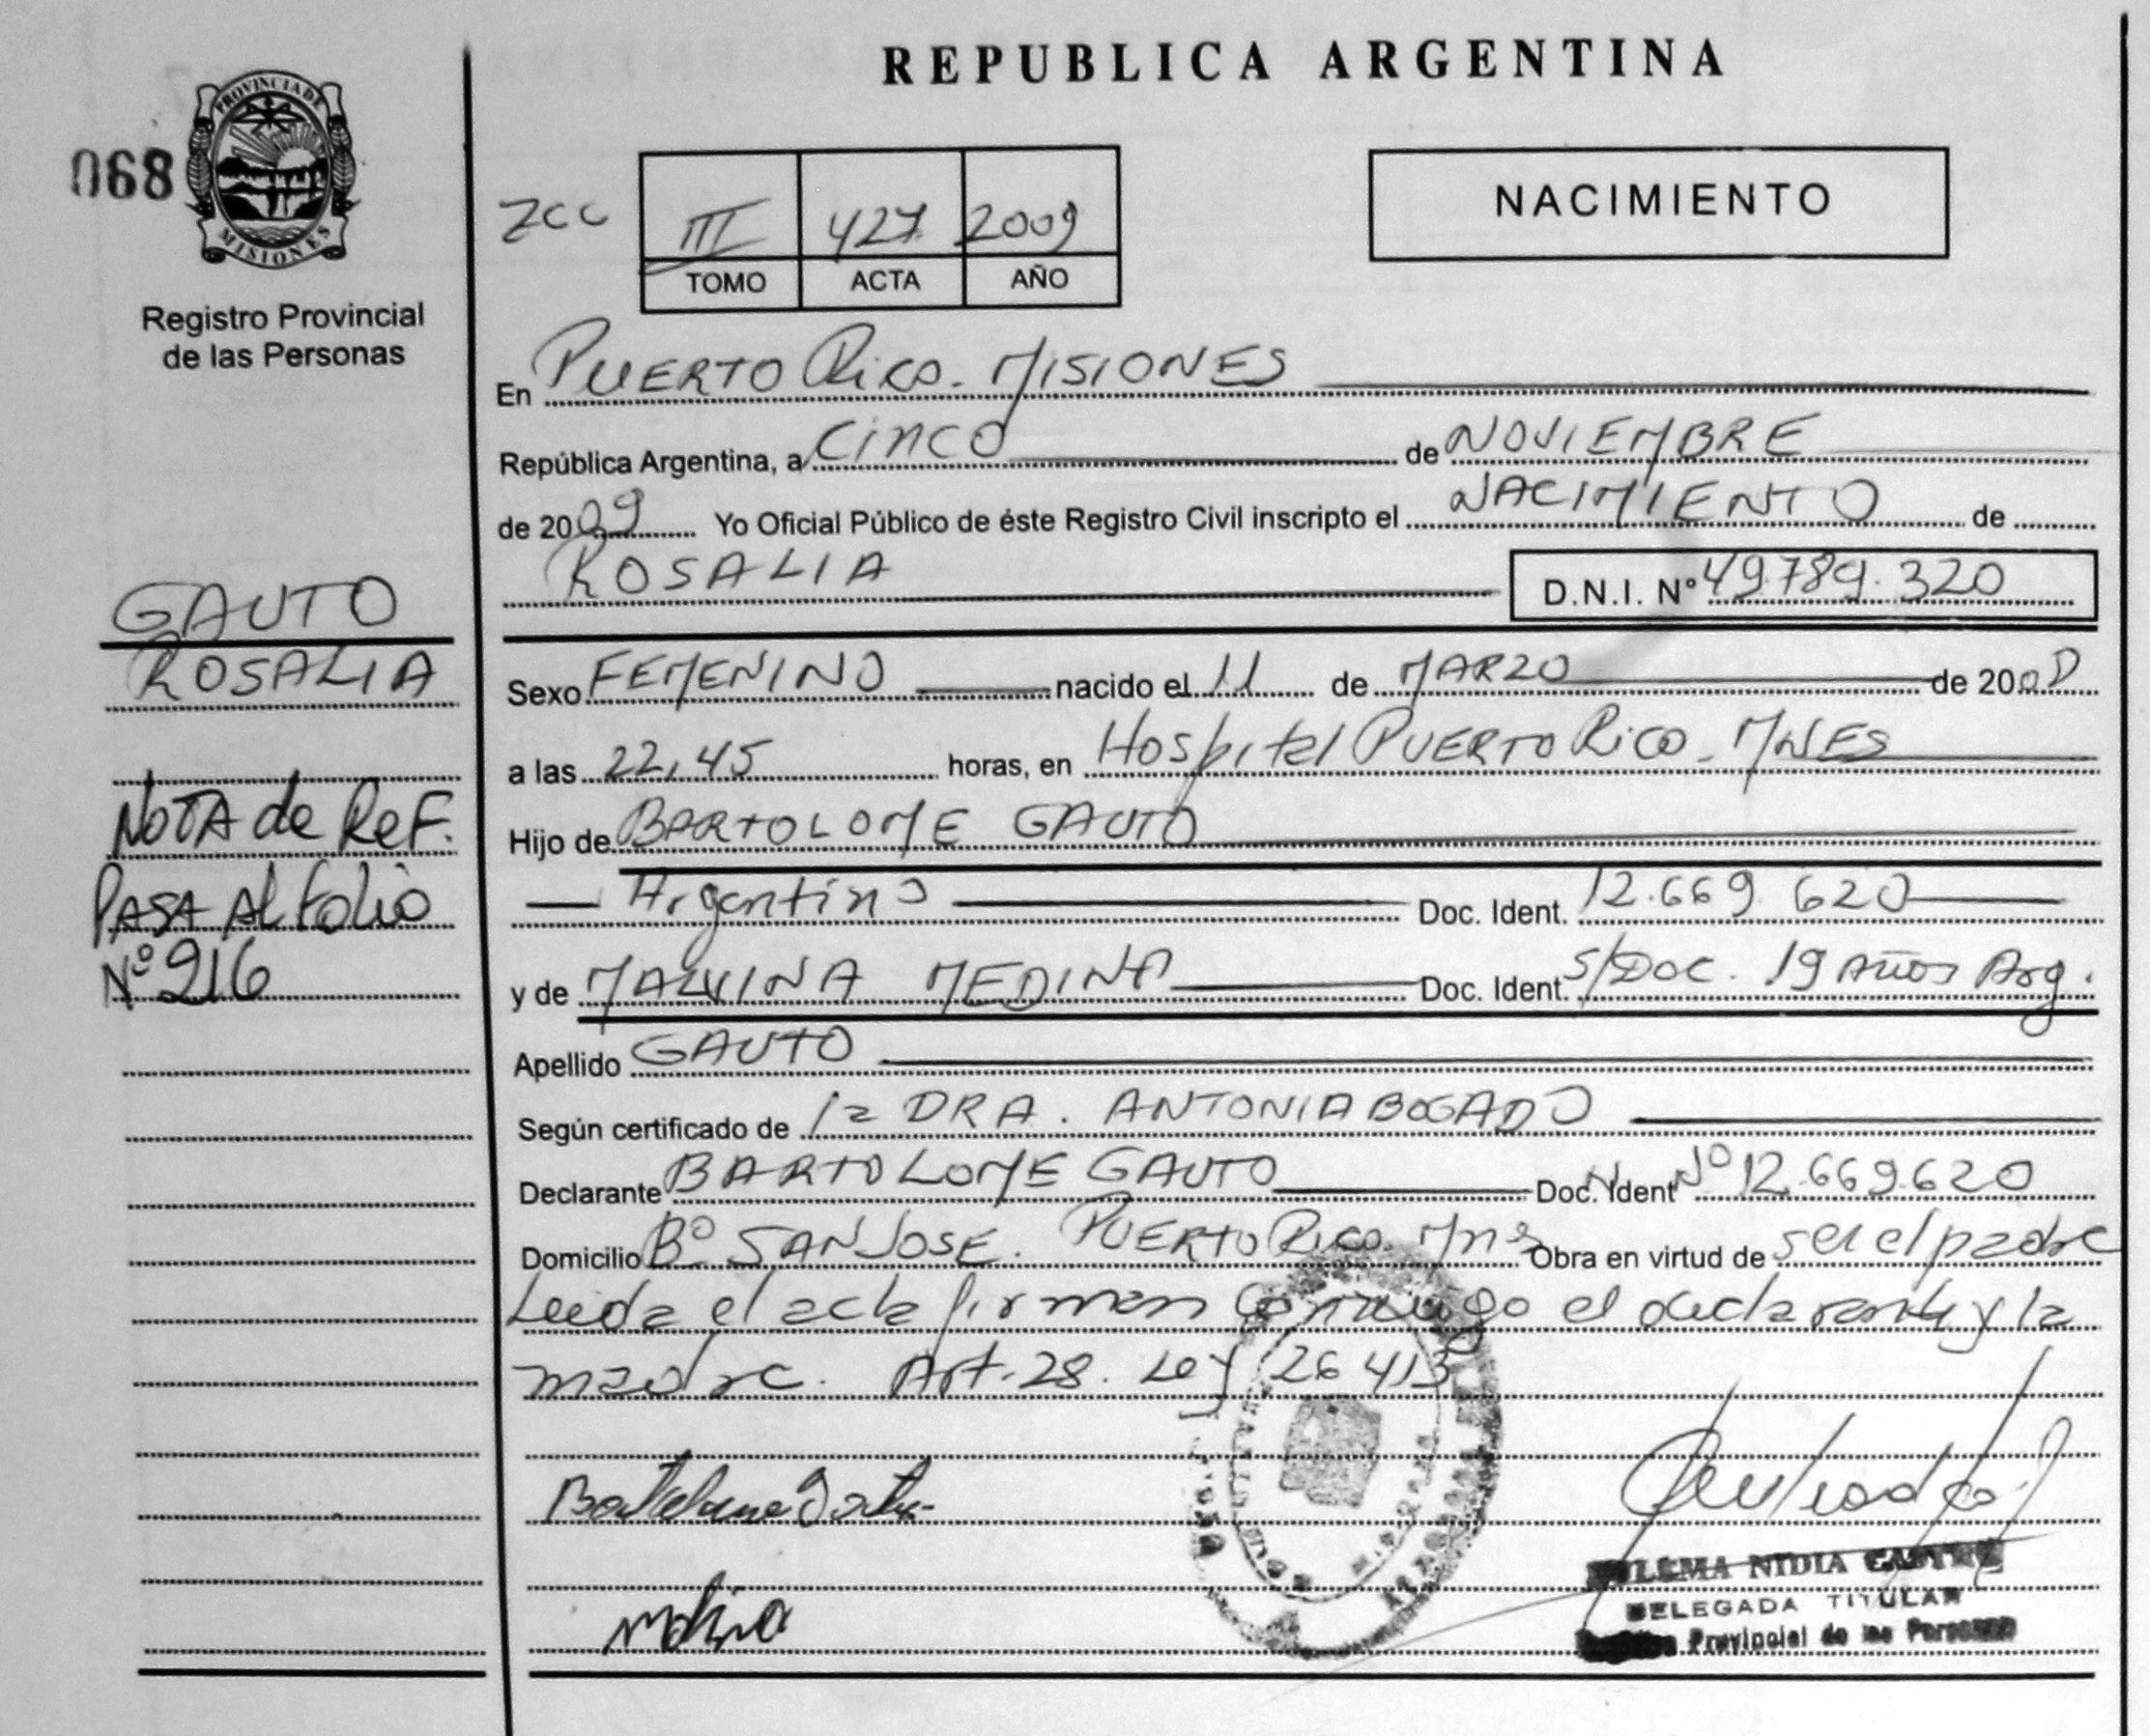 REPUBLICA ARGENTINA
PROVINCIA DE
MISIONES
068
Registro Provincial
de las Personas
ZCC
III 427 2009
TOMO ACTA AÑO
NACIMIENTO
En PUERTO RICO. MISIONES
República Argentina, a CINCO de NOVIEMBRE
de 2009 Yo Oficial Público de éste Registro Civil inscripto el NACIMIENTO de
ROSALIA D.N.I. Nº 49.789.320
GAUTO
ROSALIA
NOTA de ReF.
PASA Al Folio
Nº 216
Sexo FEMENINO nacido el 11 de MARZO de 200
a las 22,45 horas, en Hospital PUERTO RICO. MNES
Hijo de BARTOLOME GAUTO
Argentino Doc. Ident. 12.669.620
y de MALVINA MEDINA Doc. Ident. S/DOC. 19 AÑOS Arg.
Apellido GAUTO
Según certificado de la DRA. ANTONIA BOGADO
Declarante BARTOLOME GAUTO Doc. Ident Nº 12.669.620
Domicilio Bº SAN JOSE. PUERTO RICO. Mns Obra en virtud de ser el padre
Leida el acta firman conmigo el declarante y la
madre. Art. 28. Ley 26413
NIDIA
DELEGADA TITULAR
Provincial de las Personas